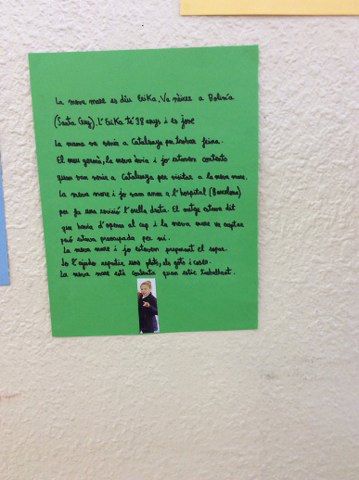 La meva mare es diu Erika. Va néixer a Bolívia
(Santa Cruz). L'Erika té 38 anys i es jove
La mama va venir a Catalunya per trobar feina.
El meu germà, la meva àvia i jo estavem contents
quan van venir a Catalunya per visitar a la meva mare.
La meva mare i jo vam anar a l'hospital (Barcelona)
per fer una revisió l'orella dreta. El metge estava dit
que havia d'operar al cap i la meva mare va acceptar
però estava preocupada per mi.
La meva mare i jo estavem preparant el sopar.
Jo l'ajudo els plats, els gots i coses.
La meva mare està contenta quan estic treballant.